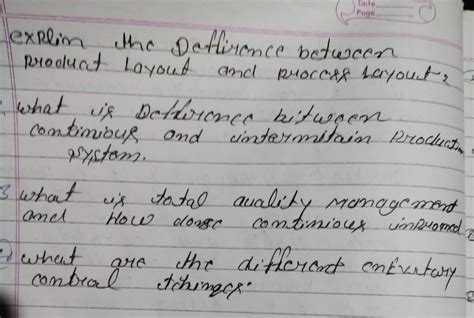 Date
Page
explin the Deffirence between
product Layout and process Layout?
what is Defference bitween
continious and intermitain Production
system.
3 what is total quality management
and How doese continious improned
what are the different enevutary
contral tchinges.